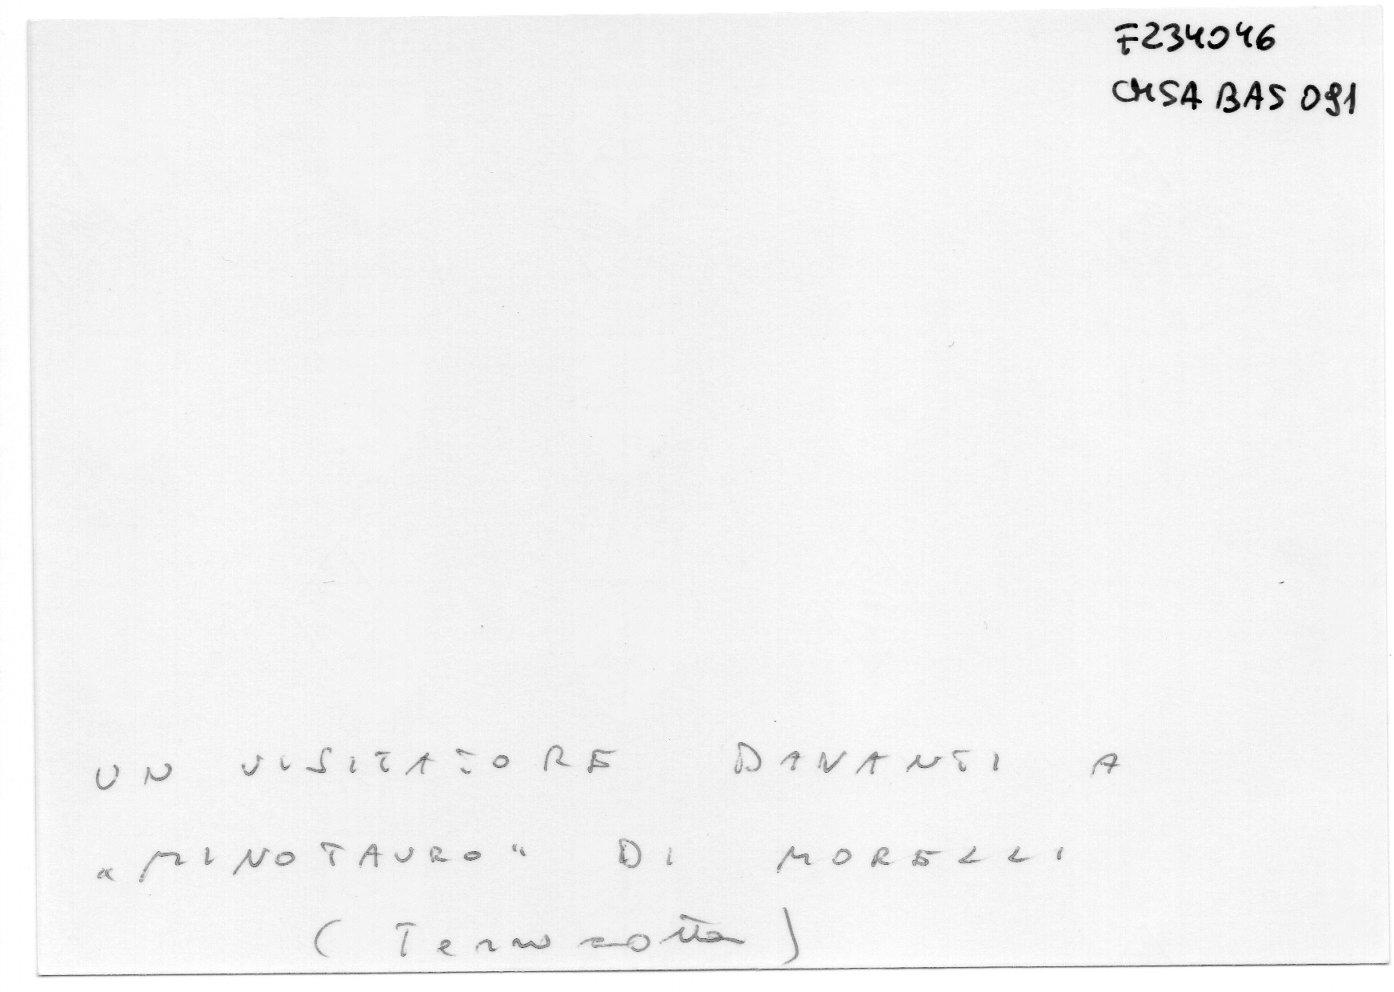 F234046
CMSA BAS 091
UN VISITATORE DAVANTI A
"MINOTAURO" DI MORELLI
(Terracotta)